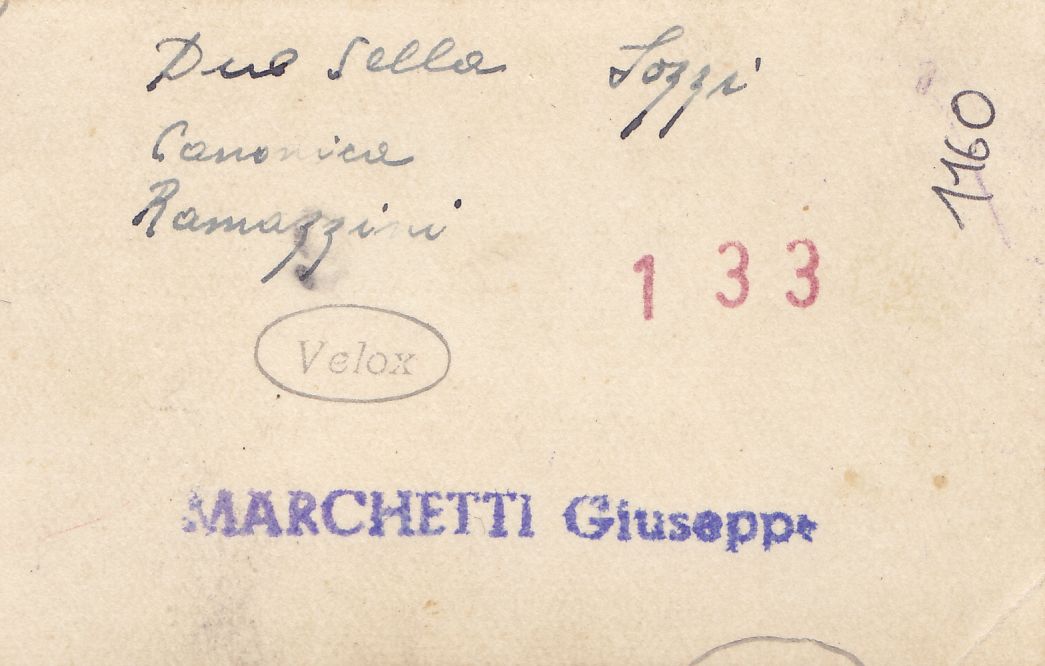 Due Sella Sozzi
Canonica
Ramazzini
1160
133
Velox
MARCHETTI Giuseppe